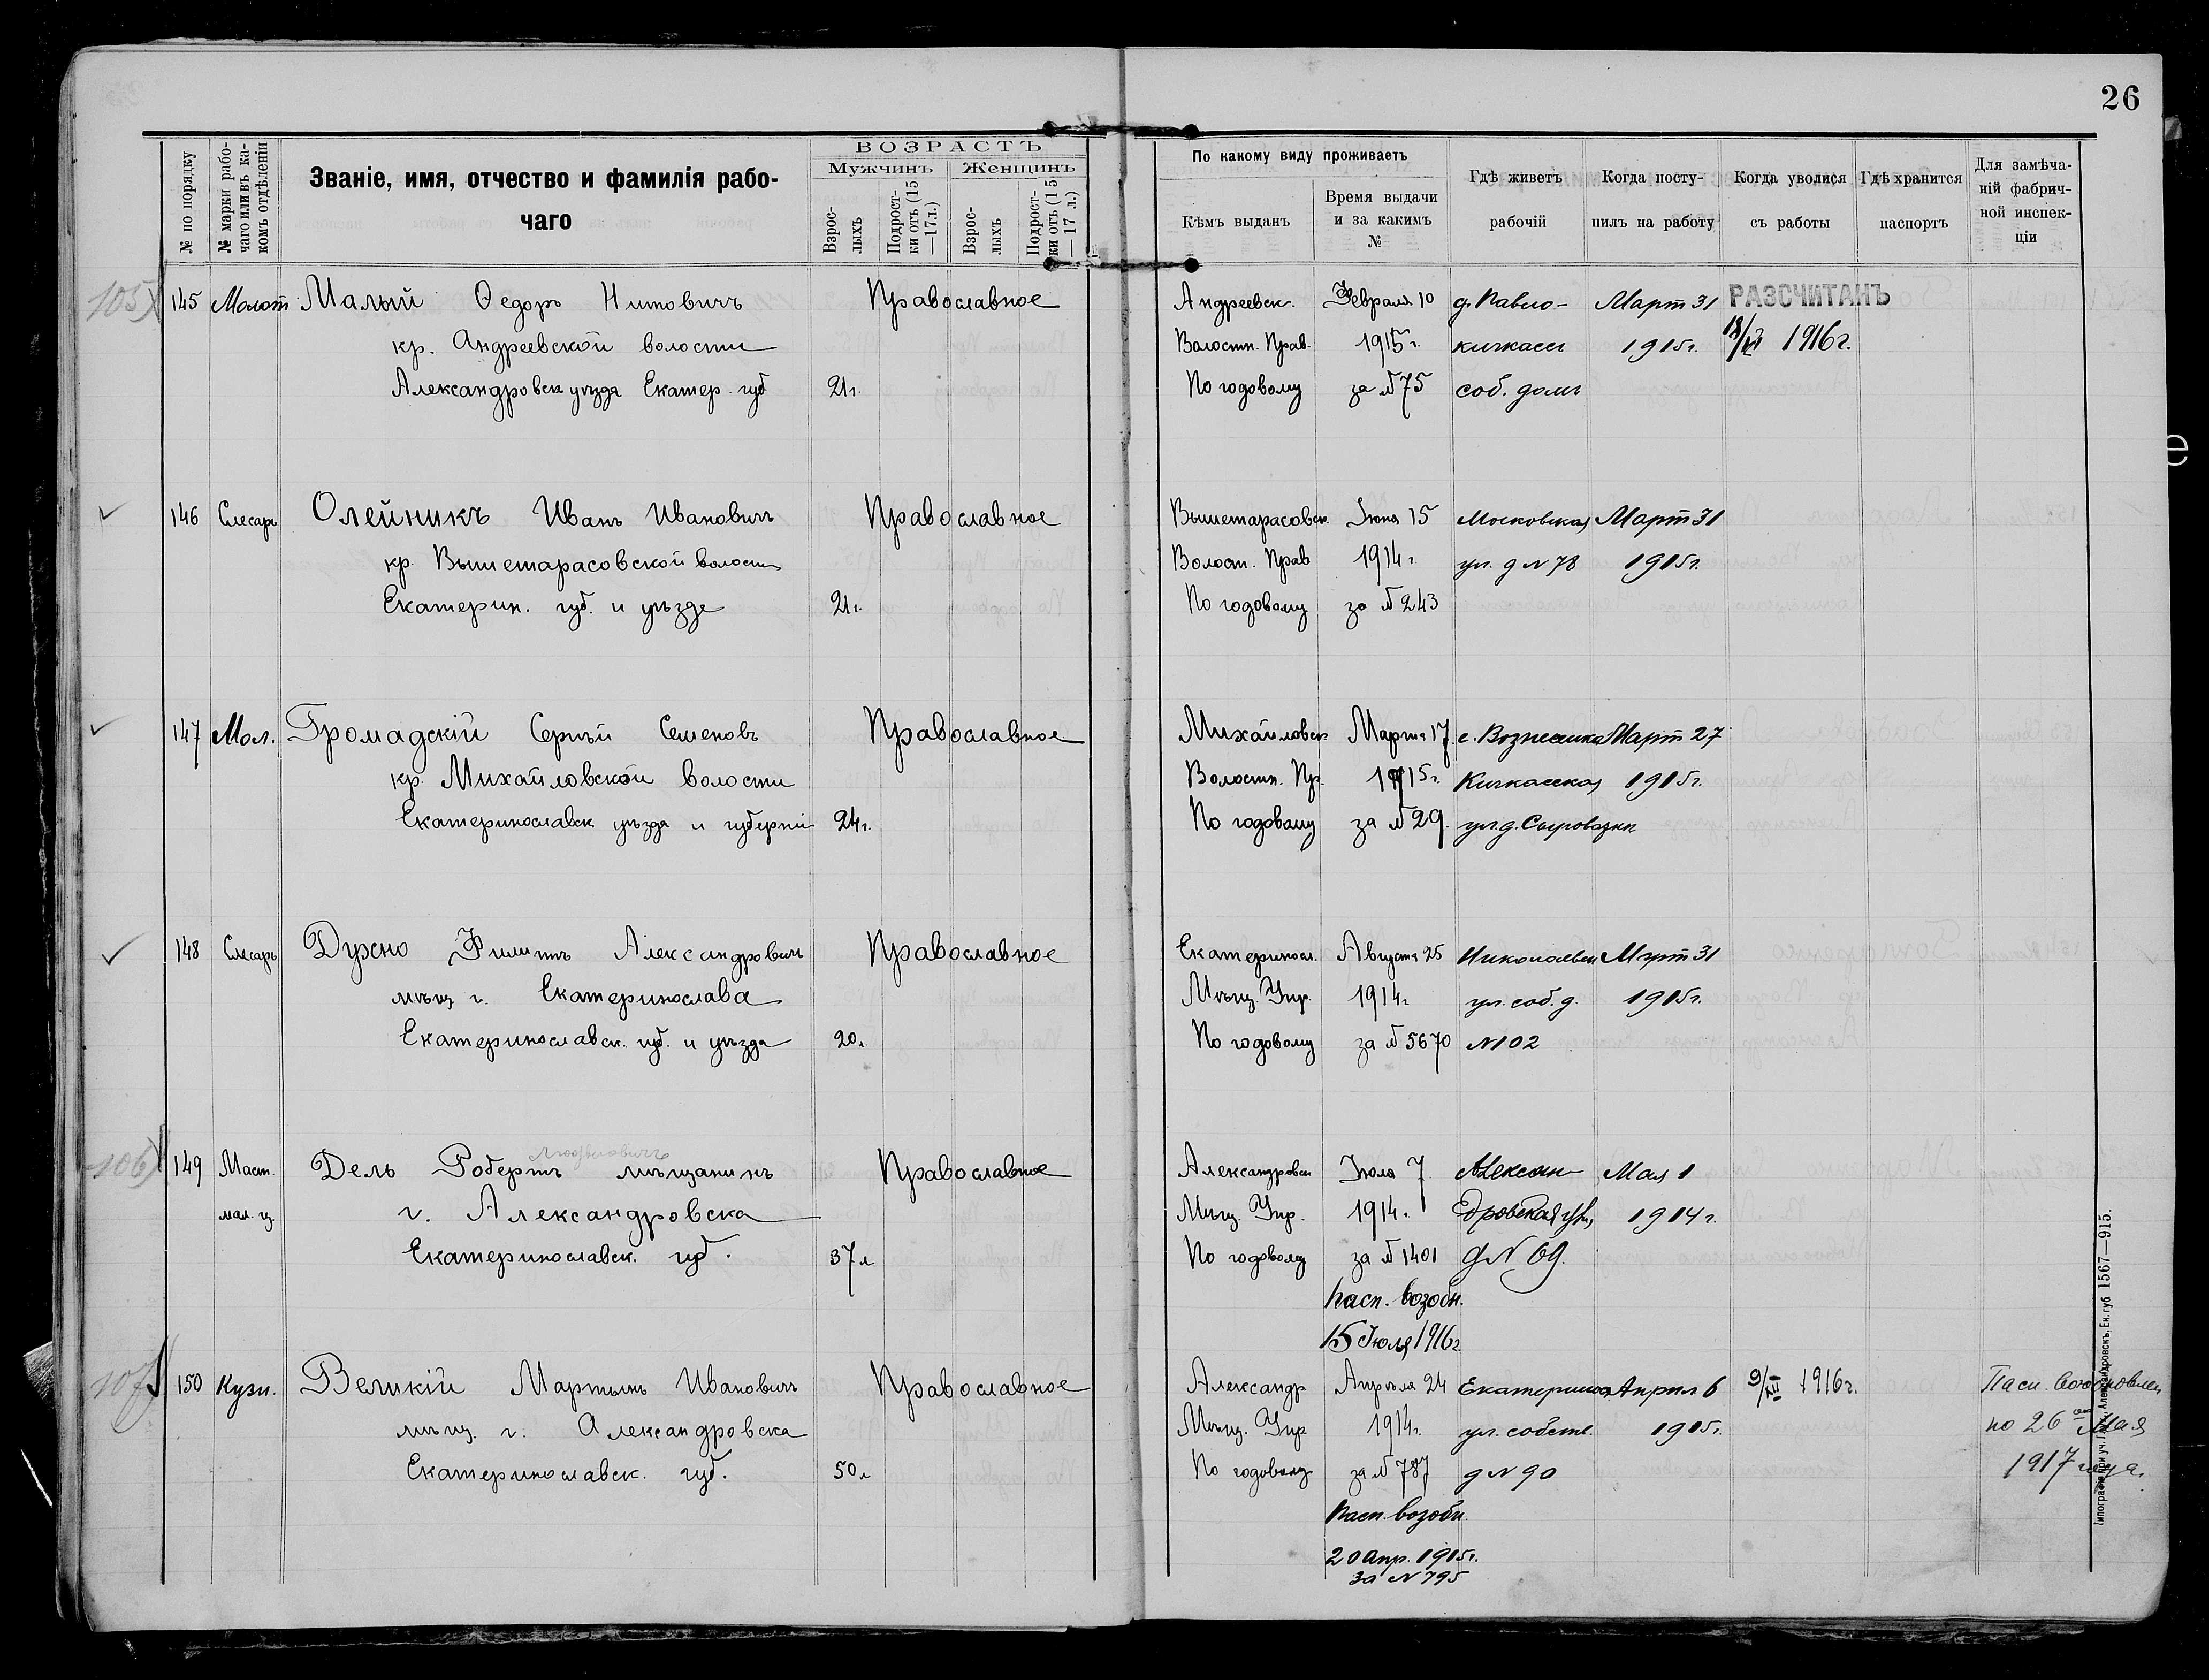 26
№ по порядку
№ марки рабо-
чаго или въ ка-
комъ отдѣленіи
Званіе, имя, отчество и фамилія рабо-
чаго
ВОЗРАСТЪ
Мужчинъ
Женщинъ
Взрос-
лыхъ
Подрост-
ки отъ (15
—17 л.)
Взрос-
лыхъ
Подрост-
ки отъ (15
— 17 л.)
По какому виду проживаетъ
Кѣмъ выданъ
Время выдачи
и за какимъ
№
Гдѣ живетъ
рабочій
Когда посту-
пилъ на работу
Когда уволился
съ работы
Гдѣ хранится
паспортъ
Для замѣча-
ній фабрич-
ной инспек-
ціи
105) 145 Молот Малый Ѳедоръ Православное Андреевск. Февраля 10 д. Павло- Март 31 РАЗСЧИТАНЪ
кр. Андреевской волости Волостн. Прав. 1915 г. кичкассы 1915г. 1916г.
Александровск уѣзда Екатер. губ 21 г. По годовому за № 75 соб. домъ
146 Слесарь Олейникъ Иванъ Ивановичъ Православное Вышетарасовск. Іюня 15 Московская Март 31
кр. Вышетарасовской волости Волост. Прав 1914 г. ул. д N 78 1915г.
Екатерин. губ. и уѣзда 21 г. По годовому за № 243
147 Мол. Громадскій Сергѣй Семеновъ Православное Михайловск Марта 17 с. Вознесенка Март 27
кр. Михайловской волости Волостн. Пр. 1915 г. Кичкасская 1915г.
Екатеринославск уѣзда и губерніи 24 г. По годовому за № 29. ул. д.
148 Слесарь Духно Филиппъ Александровичъ Православное Екатериносл. Августа 25 Николаевск Март 31
мѣщ г. Екатеринослава Мѣщ. Упр. 1914 г. ул. соб. д. 1915г.
Екатеринославск. губ. и уѣзда 20 л. По годовому за № 5670 N 102
106) 149 Маст. Дель Робертъ мѣщанинъ Православное Александровск Іюля 7 Алексан- Мая 1
мал. ц. г. Александровска Мѣщ. Упр. 1914 г. дровская ул, 1914 г.
Екатеринославск. губ. 37 л По годовому за № 1401 д N 69.
Пасп. возобн.
15 Іюля 1916г
107 150 Кузн. Великій Мартынъ Ивановичъ Православное Александр Апрѣля 24 Екатеринос Април 6 9/XII 1916г. Пасп. Возобновлен
мѣщ. г. Александровска Мѣщ. Упр 1914 г. ул. собств. 1915г. по 26 Мая
Екатеринославск. губ. 50 л По годовому за № 787 д N 90 1917 года.
Пасп. возобн.
20 Апр. 1915г.
за N 795